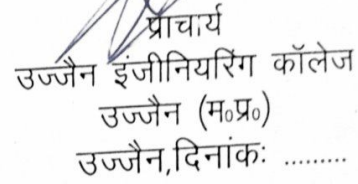 प्राचार्य
उज्जैन इंजीनियरिंग कॉलेज
उज्जैन (म०प्र०)
उज्जैन,दिनांकः .........